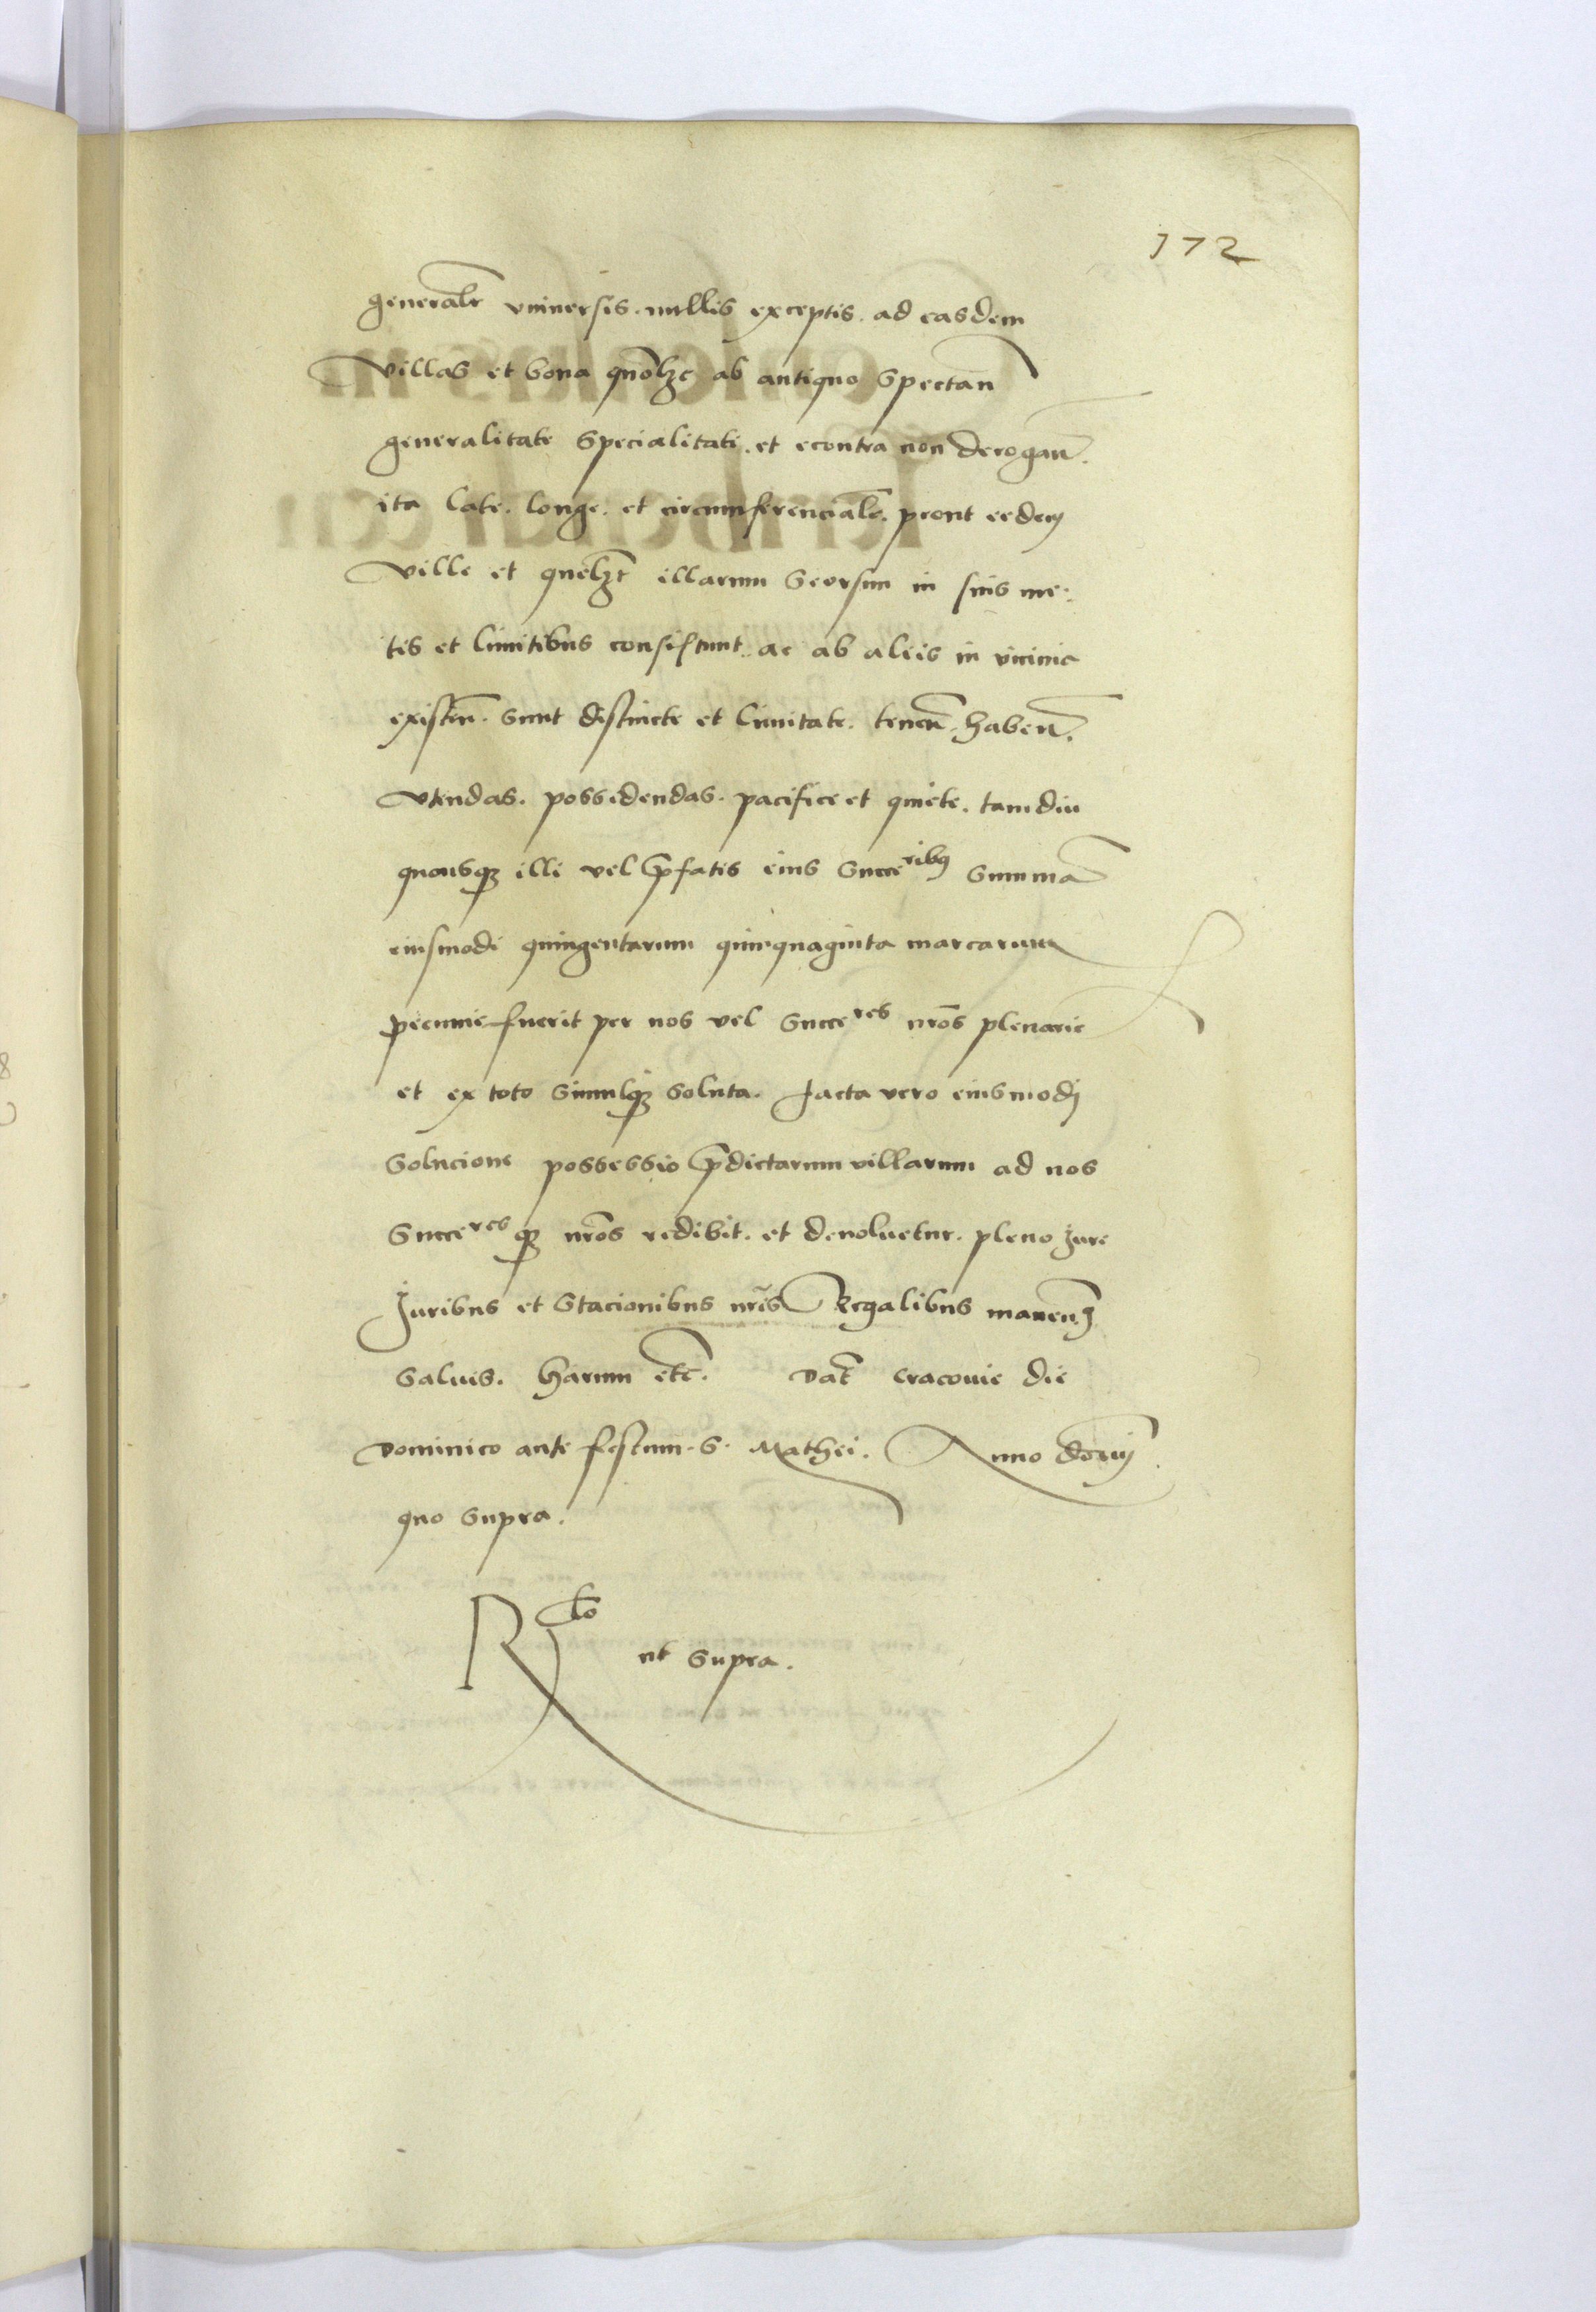 172
generalr vniuersis. nullis exceptis. ad easdem
villas et bona quolzc ab antiquo spectan
generalitate specialitati. et econtra non derogan.
ita late. longe. et circumferencialr. prout eedem
ville et quelzt illarum seorsum in suis me:
tis et limitibus consistunt. ac ab aliis in vicinia
existen. sunt distincte et limitate. tenen. haben.
vtendas. possidendas. pacifice et quiete. tamdiu
quousque illi vel pfatis eius succeribus summa
eiusmodi quingentarum quinquaginta marcarum
pecunie fuerit per nos vel succeres nros plenarie
et ex toto simulque soluta. facta vero eiusmodi
solucione possessio pdictarum villarum ad nos
succeresque nros redibit. et deuoluetur. pleno jure
Juribus et stacionibus nris Regalibus manen
saluis. harum etc. Dat Cracouie die
dominico ante festum. S. Mathei. Anno domini
quo supra.
Rlo ut supra.